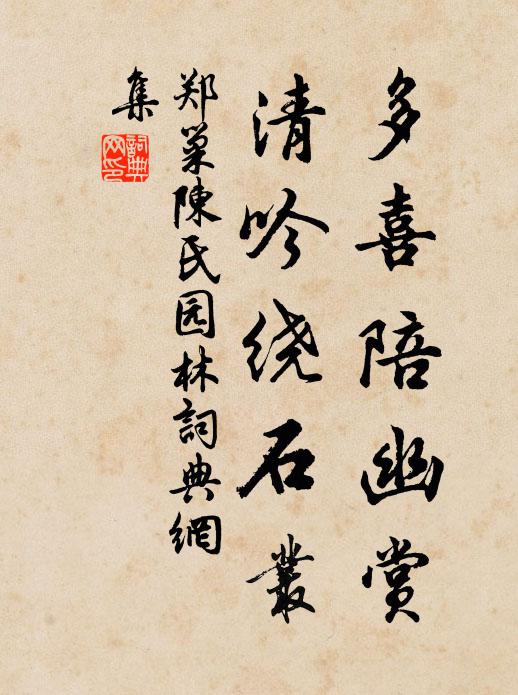 多喜陪幽赏
清吟绕石丛
郑巢陈氏园林詞典網
集
詞典网印